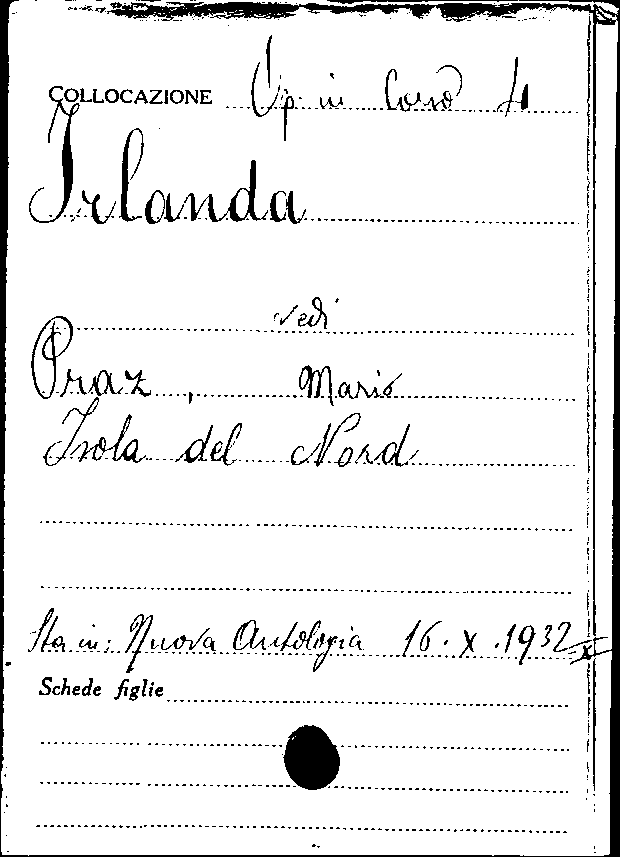 COLLOCAZIONE Op. in Corso 4
Irlanda
vedi
Praz, Mario
Isola del Nord
Sta in: Nuova Antologia 16.X.1932
Schede figlie